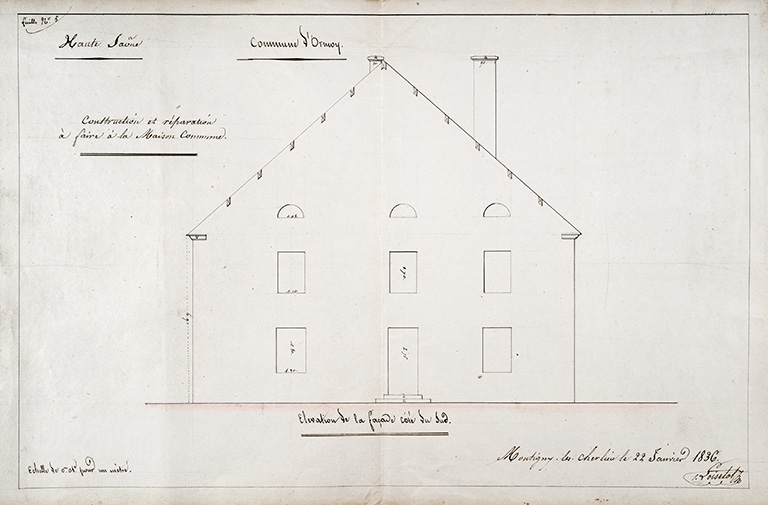 feuille N.º 5
Haute Saône
Commune d'Ormoy.
Construction et réparation
à faire à la Maison Commune.
Elevation de la façade côté du Sud.
Echelle de 0.01 pour un mètre.
Montigny-les-Cherlieu le 22 Janvier 1836.